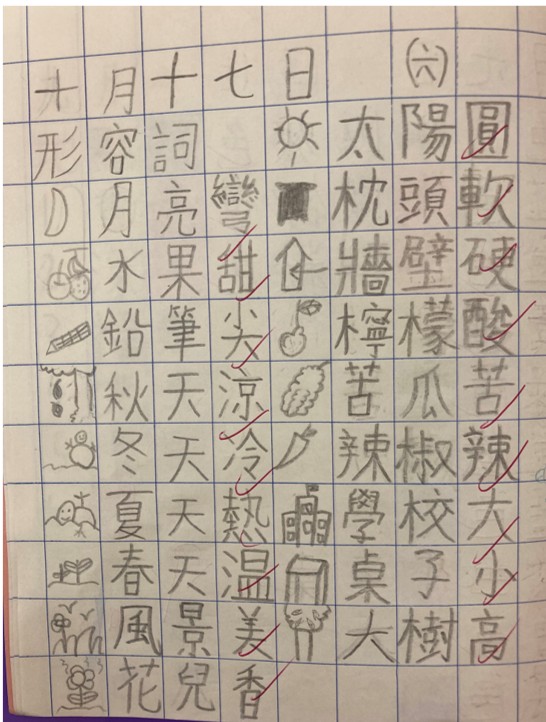 十月十七日 (六)
形容詞 太陽圓
月亮彎 枕頭軟
水果甜 牆壁硬
鉛筆尖 檸檬酸
秋天涼 苦瓜苦
冬天冷 辣椒辣
夏天熱 學校大
春天温 桌子少
風景美 大樹高
花兒香